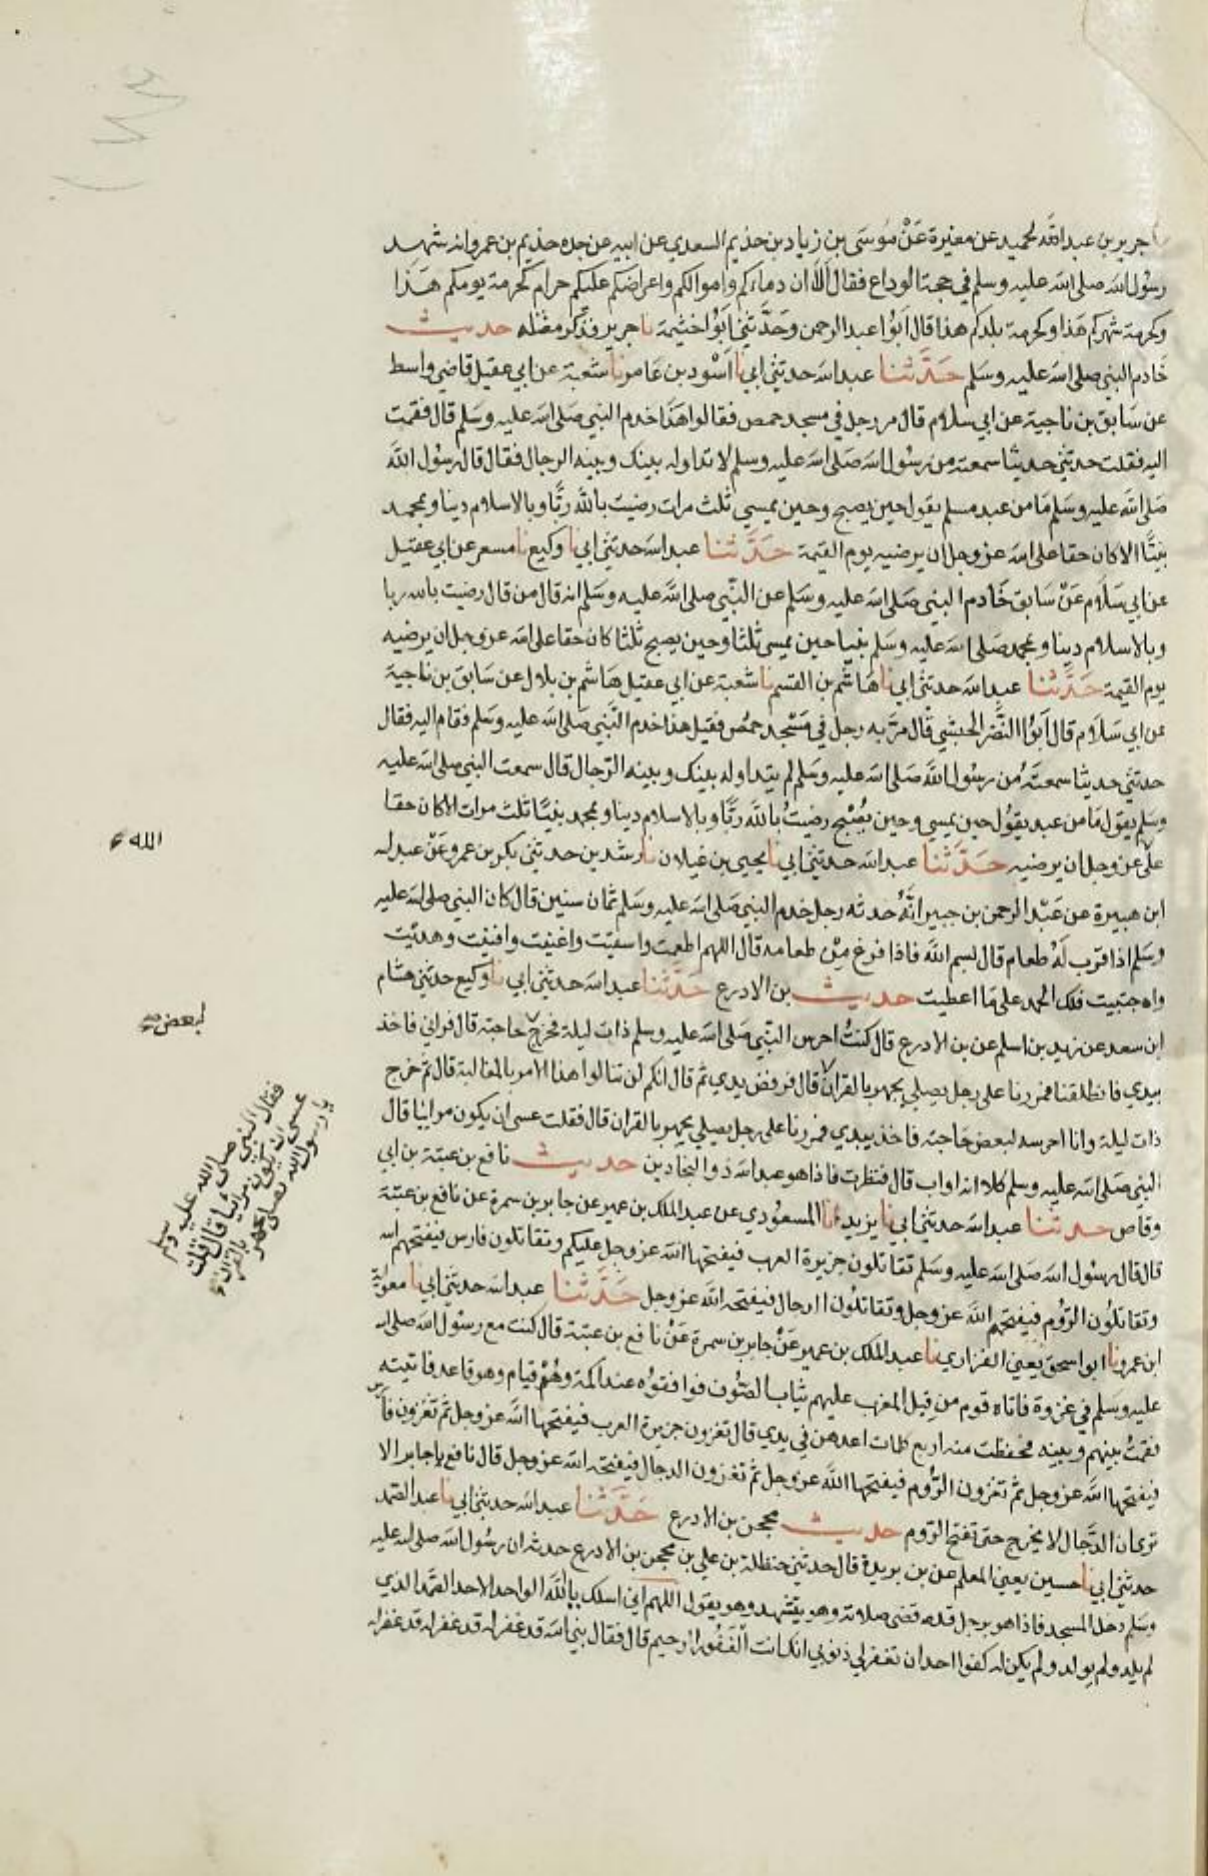 جرير بن عبد الله لحميد عن مغيرة عَنْ مُوسَى بن زياد بن حذيم السعدي عن ابيه عن جده حذيم بن عمرو انه شهد
رسُول الله صلى الله عليه وسلم في حجة الوداع فقال اَلاَ ان دماءكم واموالكم واعراضكم عليكم حرام كحرمة يومكم هَذا
وكحرمة شهركم هَذا وكحرمة بلدكم هذا قال اَبُوا عبد الرحمن وَحَدَّثَنِي اَبُوا خثيمة نا جرير فذكر مثله حديث
خَادم النبي صلى الله عليه وسَلم حَدَّثنا عبد الله حدثني ابي نا اَسْود بن عَامر نا شعبة عن ابي عقيل قاضي واسط
عن سَابق بن ناجية عن ابي سلام قال مر رجل في مسجد حمص فقالوا هَذا خدم النبي صَلى الله عليه وسَلم قال فقمت
اليه فقلت حدثني حديثا سمعته من رسُول الله صَلى الله عليه وسلم لا تداوله بينك وبينه الرجال فقال قال رسُول الله
صَلى الله عليه وسَلم مَا من عبد مسلم يقول حين يصبح وحين يمسي ثلث مرات رضيت بالله ربًّا وبالاسلام دينا وبمحمد
نبيًّا الا كان حقا على الله عز وجل ان يرضيه يوم القيمة حَدَّثنا عبد الله حدثني ابي نا وكيع نا مسعر عن ابي عقيل
عن ابي سَلَام عَنْ سَابق خَادم النبي صَلى الله عليه وسَلم عن النّبي صلى الله عليه وسَلم انه قال من قال رضيت بالله ربا
وبالاسلام دينا وبمحمد صَلى الله عليه وسَلم نبيا حين يمسي ثلثا وحين يصبح ثلثا كان حقا على الله عز وجل ان يرضيه
يوم القيمة حَدَّثنا عبد الله حدثني ابي نا هَاشم بن القسم نا شعبة عن ابي عقيل هَاشم بن بلال عن سَابق بن ناجية
عن ابي سَلَام قال اَبُوا النَّضر الحبشي قال مرَّ به رجل في مَسْجد حمُص فقيل هذا خدم النَّبي صَلى الله عليه وسَلم فقام اليه فقال
حدثني حديثا سمعتَهُ من رسُول اللَّه صَلى الله عليه وسَلم لم يتداوله بينك وبينه الرّجال قال سمعت النبي صلى الله عليه
وسَلم يقول مَا من عبد يقُول حين يمسي وحين يُصْبح رضيتُ بالله ربًّا وبالاسلام دينا وبمحمد نبيًّا ثلث مرات الا كان حقا
على عز وجل ان يرضيه حَدَّثنا عبد الله حدثني ابي نا يحيى بن غيلان نا رشد بن حدثني بكر بن عمرو عَنْ عبد له
الله
ابن هبيرة عن عَبْد الرحمن بن جبير انَّهُ حدثه رجل خدم النبي صَلى الله عليه وسَلم ثمان سنين قال كان النبي صلى الله عليه
وسَلم اذا قرب لَهُ طعام قال بسم الله فاذا فرغ مِنْ طعامه قال اللهم اطعمت واسقيت واغنيت واقنيت وهديت
واجتبيت فلك الحمد على مَا اعطيت حديث بن الادرع حَدَّثنا عبد الله حدثني ابي نا وكيع حدثني هشام
ابن سعد عن زيد بن اسلم عن بن الادرع قال كنتُ احرس النَّبي صَلى الله عليه وسلم ذات ليلة فخرج حاجته قال فراني فاخذ
لبعض صح
بيدي فانطلقنا فمررنا على رجل يصلي يجهر بالقران قال فرفض يدي ثم قال انكم لن تنالوا هذا الامر بالمغالبة قال ثم خرج
فقال النبي صلى الله عليه وسلم
عسى ان يكون مرائيا قال قلت
يا رسول الله يصلي يجهر
بالقران
ذات ليلة وانا احرسه لبعض حَاجته فاخذ بيدي فمررنا على رجل يصلي يجهر بالقران قال فقلت عسى ان يكون مرائيا قال
النبي صَلى الله عليه وسلم كلا انه اواب قال فنظرت فاذا هو عبد الله ذوالبجادين حديث نافع بن عتبة بن ابي
وقاص حدثنا عبد الله حدثني ابي نا يزيد انا المسعُودي عن عبد الملك بن عمير عن جابر بن سمرة عن نافع بن عتبة
قال قال رسُول الله صَلى الله عليه وسَلم تقاتلون جزيرة العرب فيفتحها الله عز وجل عليكم وتقاتلون فارس فيفتحهم الله
وتقاتلُون الرّوم فيفتحهم الله عز وجل وتقاتلُون الرجال فيفتحه الله عز وجل حَدَّثنا عبد الله حدثني ابي نا معوية
ابن عمرو نا ابو اسحق يَعني الفزاري نا عبد الملك بن عمير عَنْ جابر بن سمرة عَنْ نافع بن عتبة قال كنت مع رسُول الله صلى الله
عليه وسَلم في غزوة فاتاه قوم من قِبل المغرب عليهم ثياب الصّوف فوافقوه عند اكمة وهُمْ قيام وهو قاعد فاتيته
فقمتُ بينهم وبينه فحفظت منه اربع كلمات اعدهن في يدي قال تغزون جزيرة العرب فيفتحها الله عز وجل ثم تغزون فارس
فيفتحها الله عز وجل ثم تغزون الرُّوم فيفتحها الله عز وجل ثم تغزون الدجال فيفتحه الله عز وجل قال نافع يا جابر الا
ترى ان الدَّجال لا يخرج حتى تفتح الرّوم حديث محجن بن الادرع حَدَّثنا عبد الله حدثني ابي نا عبد الصمد
حدثني ابي نا حسين يعني المعلم عن بن بريدة قال حدثني حنظلة بن علي بن محجن بن الادرع حدثه ان رسُول الله صلى الله عليه
وسَلم دخل المسجد فاذا هو برجل قد قضى صلاته وهو يتشهد وهو يقول اللهم اني اسلك يالله الواحد الاحد الصمد الذي
لم يلد ولم يولد ولم يكن له كفوا احد ان تغفر لي ذنوبي انك انت الْغَفُور الرحيم قال فقال نبي الله قد غفر له قد غفر له قد غفر له